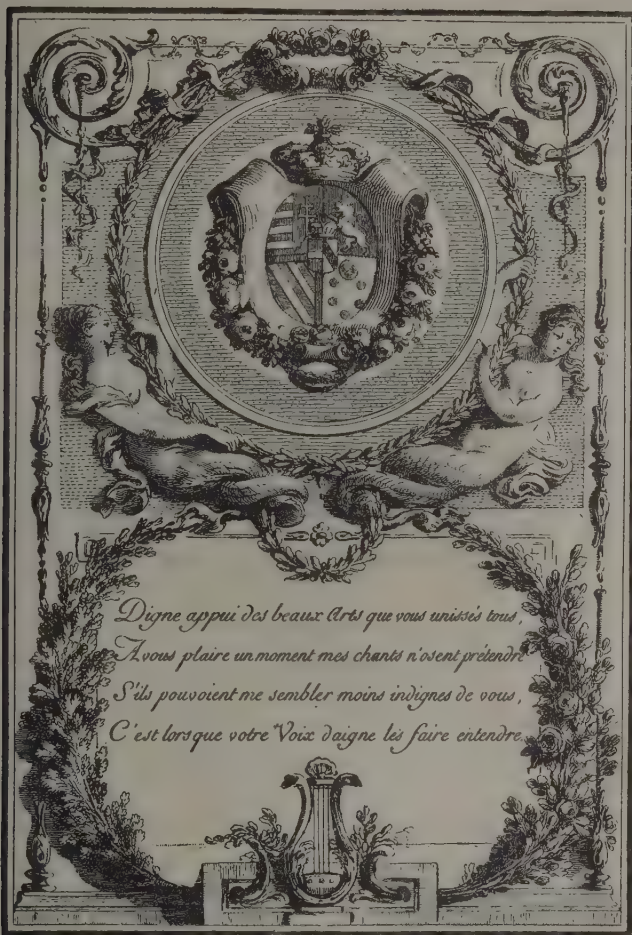 Digne appui des beaux Arts que vous unissés tous,
A vous plaire un moment mes chants n'osent prétendre
S'ils pouvoient me sembler moins indignes de vous,
C'est lorsque votre Voix daigne les faire entendre.